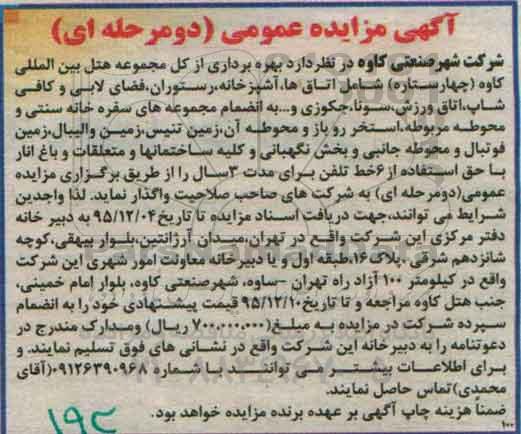 آگهی مزایده عمومی (دومرحله ای)
شرکت شهرصنعتی کاوه در نظردارد بهره برداری از کل مجموعه هتل بین المللی
کاوه (چهارستاره) شامل اتاق ها،آشپزخانه،رستوران،فضای لابی و کافی
شاپ،اتاق ورزش،سونا،جکوزی و...به انضمام مجموعه های سفره خانه سنتی و
محوطه مربوطه،استخر رو باز و محوطه آن،زمین تنیس،زمین والیبال،زمین
فوتبال و محوطه جانبی و بخش نگهبانی و کلیه ساختمانها و متعلقات و باغ انار
با حق استفاده از۶خط تلفن برای مدت ۳سال را از طریق برگزاری مزایده
عمومی(دومرحله ای) به شرکت های صاحب صلاحیت واگذار نماید. لذا واجدین
شرایط می توانند،جهت دریافت اسناد مزایده تا تاریخ۹۵/۱۲/۰۴ به دبیر خانه
دفتر مرکزی این شرکت واقع در تهران،میدان آرژانتین،بلوار بیهقی،کوچه
شانزدهم شرقی،پلاک۱۶،طبقه اول و یا دبیرخانه معاونت امور شهری این شرکت
واقع در کیلومتر ۱۰۰ آزاد راه تهران -ساوه، شهرصنعتی کاوه، بلوار امام خمینی،
جنب هتل کاوه مراجعه و تا تاریخ۹۵/۱۲/۱۰ قیمت پیشنهادی خود را به انضمام
سپرده شرکت در مزایده به مبلغ(۷۰۰,۰۰۰,۰۰۰ ریال) ومدارک مندرج در
دعوتنامه را به دبیرخانه این شرکت واقع در نشانی های فوق تسلیم نمایند. و
برای اطلاعات بیشتر می توانند با شماره ۰۹۱۲۶۳۹۰۹۶۸(آقای
محمدی)تماس حاصل نمایند.
ضمناً هزینه چاپ آگهی بر عهده برنده مزایده خواهد بود.
۱۰۰
۱۹۲